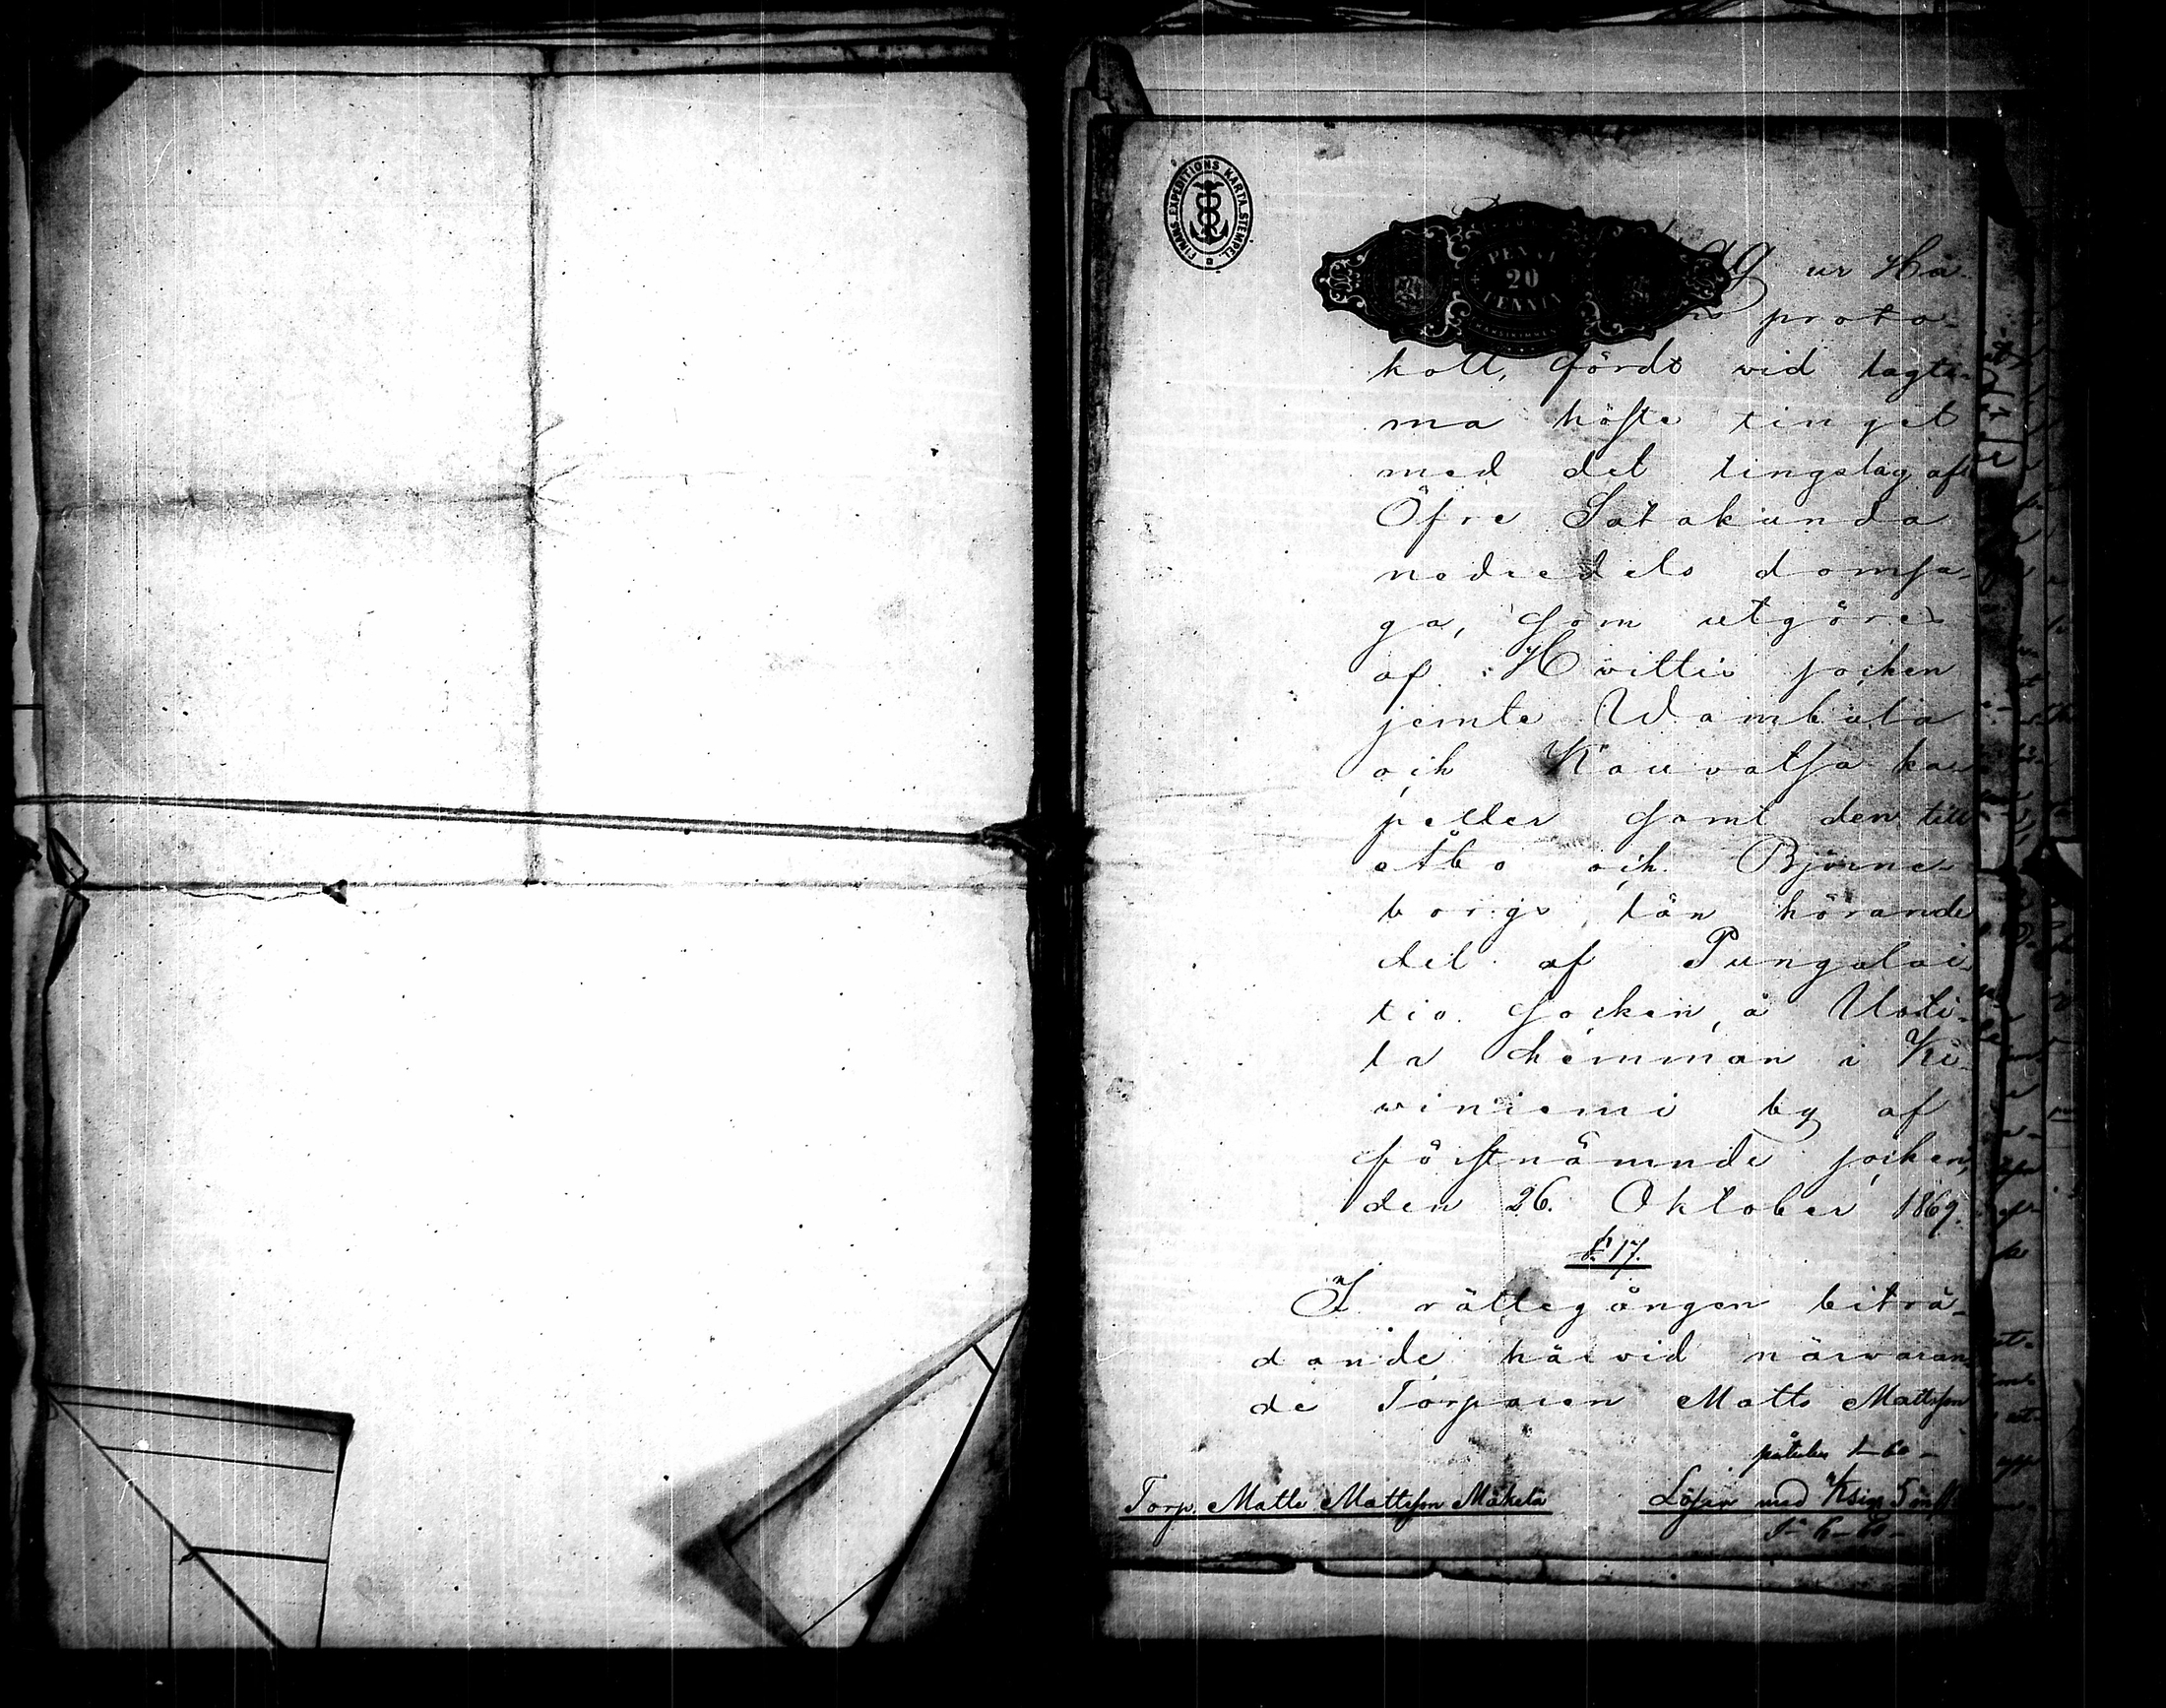 FINANS EXPEDITIONS KARTA. STEMPEL.
PENNI
20
PENNIN
ur Hä-
proto-
koll, fördt vid lagti-
ma höste tinget
med det tingslag af
Öfre Satakunda
nedredels domsa-
ga, som utgöres
af Hvittis socken
jemte Wambula
och Kauvatsa ka-
peller samt den till
Åbo och Björne-
borgs län hörande
del af Pungalai-
tio socken, å Uoti-
la hemman i Ki-
winiemi by af
förstnämnde socken,
den 26. Oktober 1869.
§ 17.
I rättegången biträ-
dande härvid närvaran-
de Torparen Matts Mattsson
1-60-
Torp. Matts Mattsson Mäkelä
Lösen med
6-60-